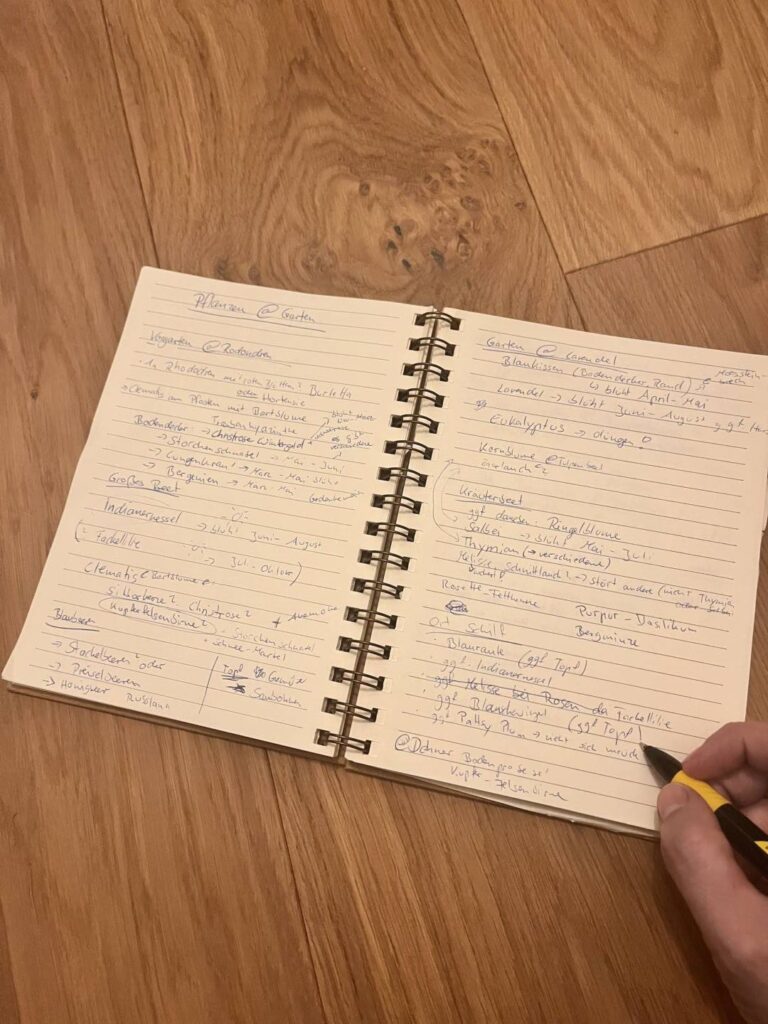 Pflanzen @ Garten
Vorgarten @ Rhododren
1x Rhododren mit roten Blüten? Burletta
oder Hortensie
Clematis am Pfosten mit Bartblume
Bodendecker: Traubenhyazinthe
→ Christrose Wintergold
→ Storchenschnabel → Mai - Juni
→ Lungenkraut → März - Mai blüht
→ Bergenien → März - Mai
Großes Beet
Indianernessel → blüht Juni - August
( Fackellilie → Juli - Oktober)
Clematis & Bartblume
Silberkerze? Christrose? + Anemone
(Kupferfelsenbirne?) · Storchenschnabel
Blaubeeren
→ Stachelbeeren? oder
→ Preiselbeeren
→ Russland
Topf Gemüse
Garten @ Lavendel
Blaukissen (Bodendecker Rand)
↳ blüht April - Mai
Lavendel → blüht Juni - August
Eukalyptus → düngen?
Kornblume
Kräuterbeet
ggf daneben: Ringelblume
Salbei → blüht Mai - Juli
Thymian (→ verschiedene)
Melisse, Schnittlauch? → stört andere (nicht Thymian
Rosette Fetthenne Purpur - Basilikum
Bergminze
Ort Schilf
· Blauraute (ggf Topf)
· ggf Indianernessel
· ggf Melisse bei Rosen da Fackellilie
· ggf (ggf Topf)
· ggf Patty Plum → nicht sich
@Dehner Bodenprobeset
Kupfer - Felsenbirne